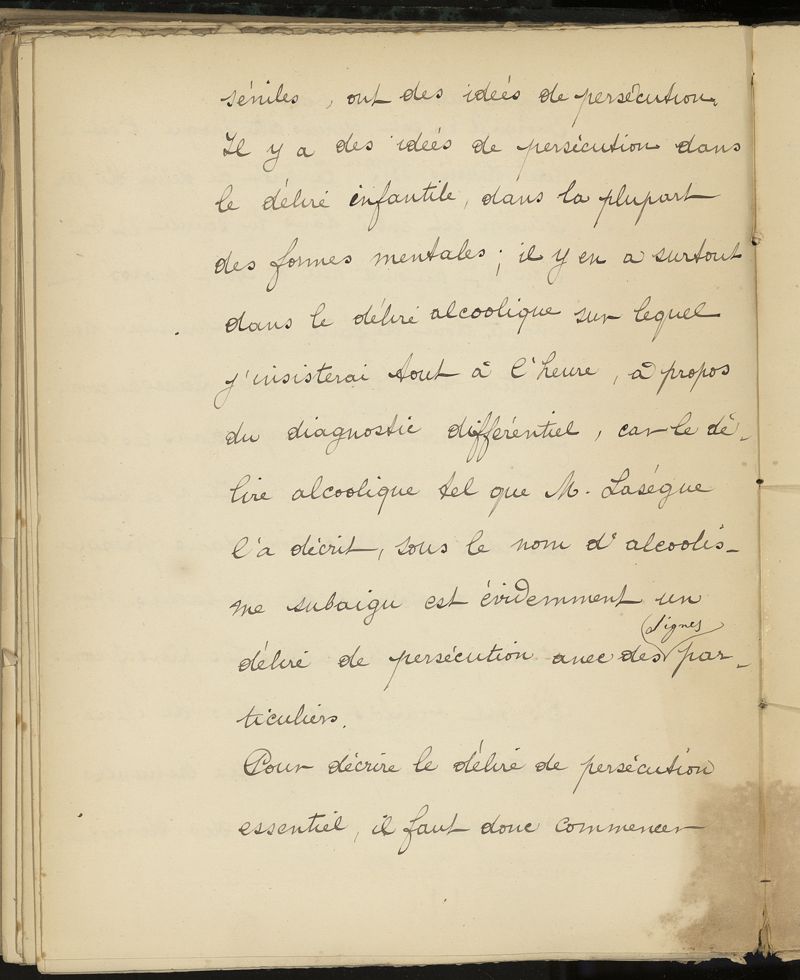 séniles, ont des idées de persécution.
Il y a des idées de persécution dans
le délire infantile, dans la plupart
des formes mentales ; il y en a surtout
dans le délire alcoolique sur lequel
j'insisterai tout à l'heure, à propos
du diagnostic différentiel, car le dé-
lire alcoolique tel que M. Laségue
l'a décrit, sous le nom d'alcoolis-
me subaigu est évidemment un
signes
délire de persécution avec des par-
ticuliers.
Pour décrire le délire de persécution
essentiel, il faut donc commencer